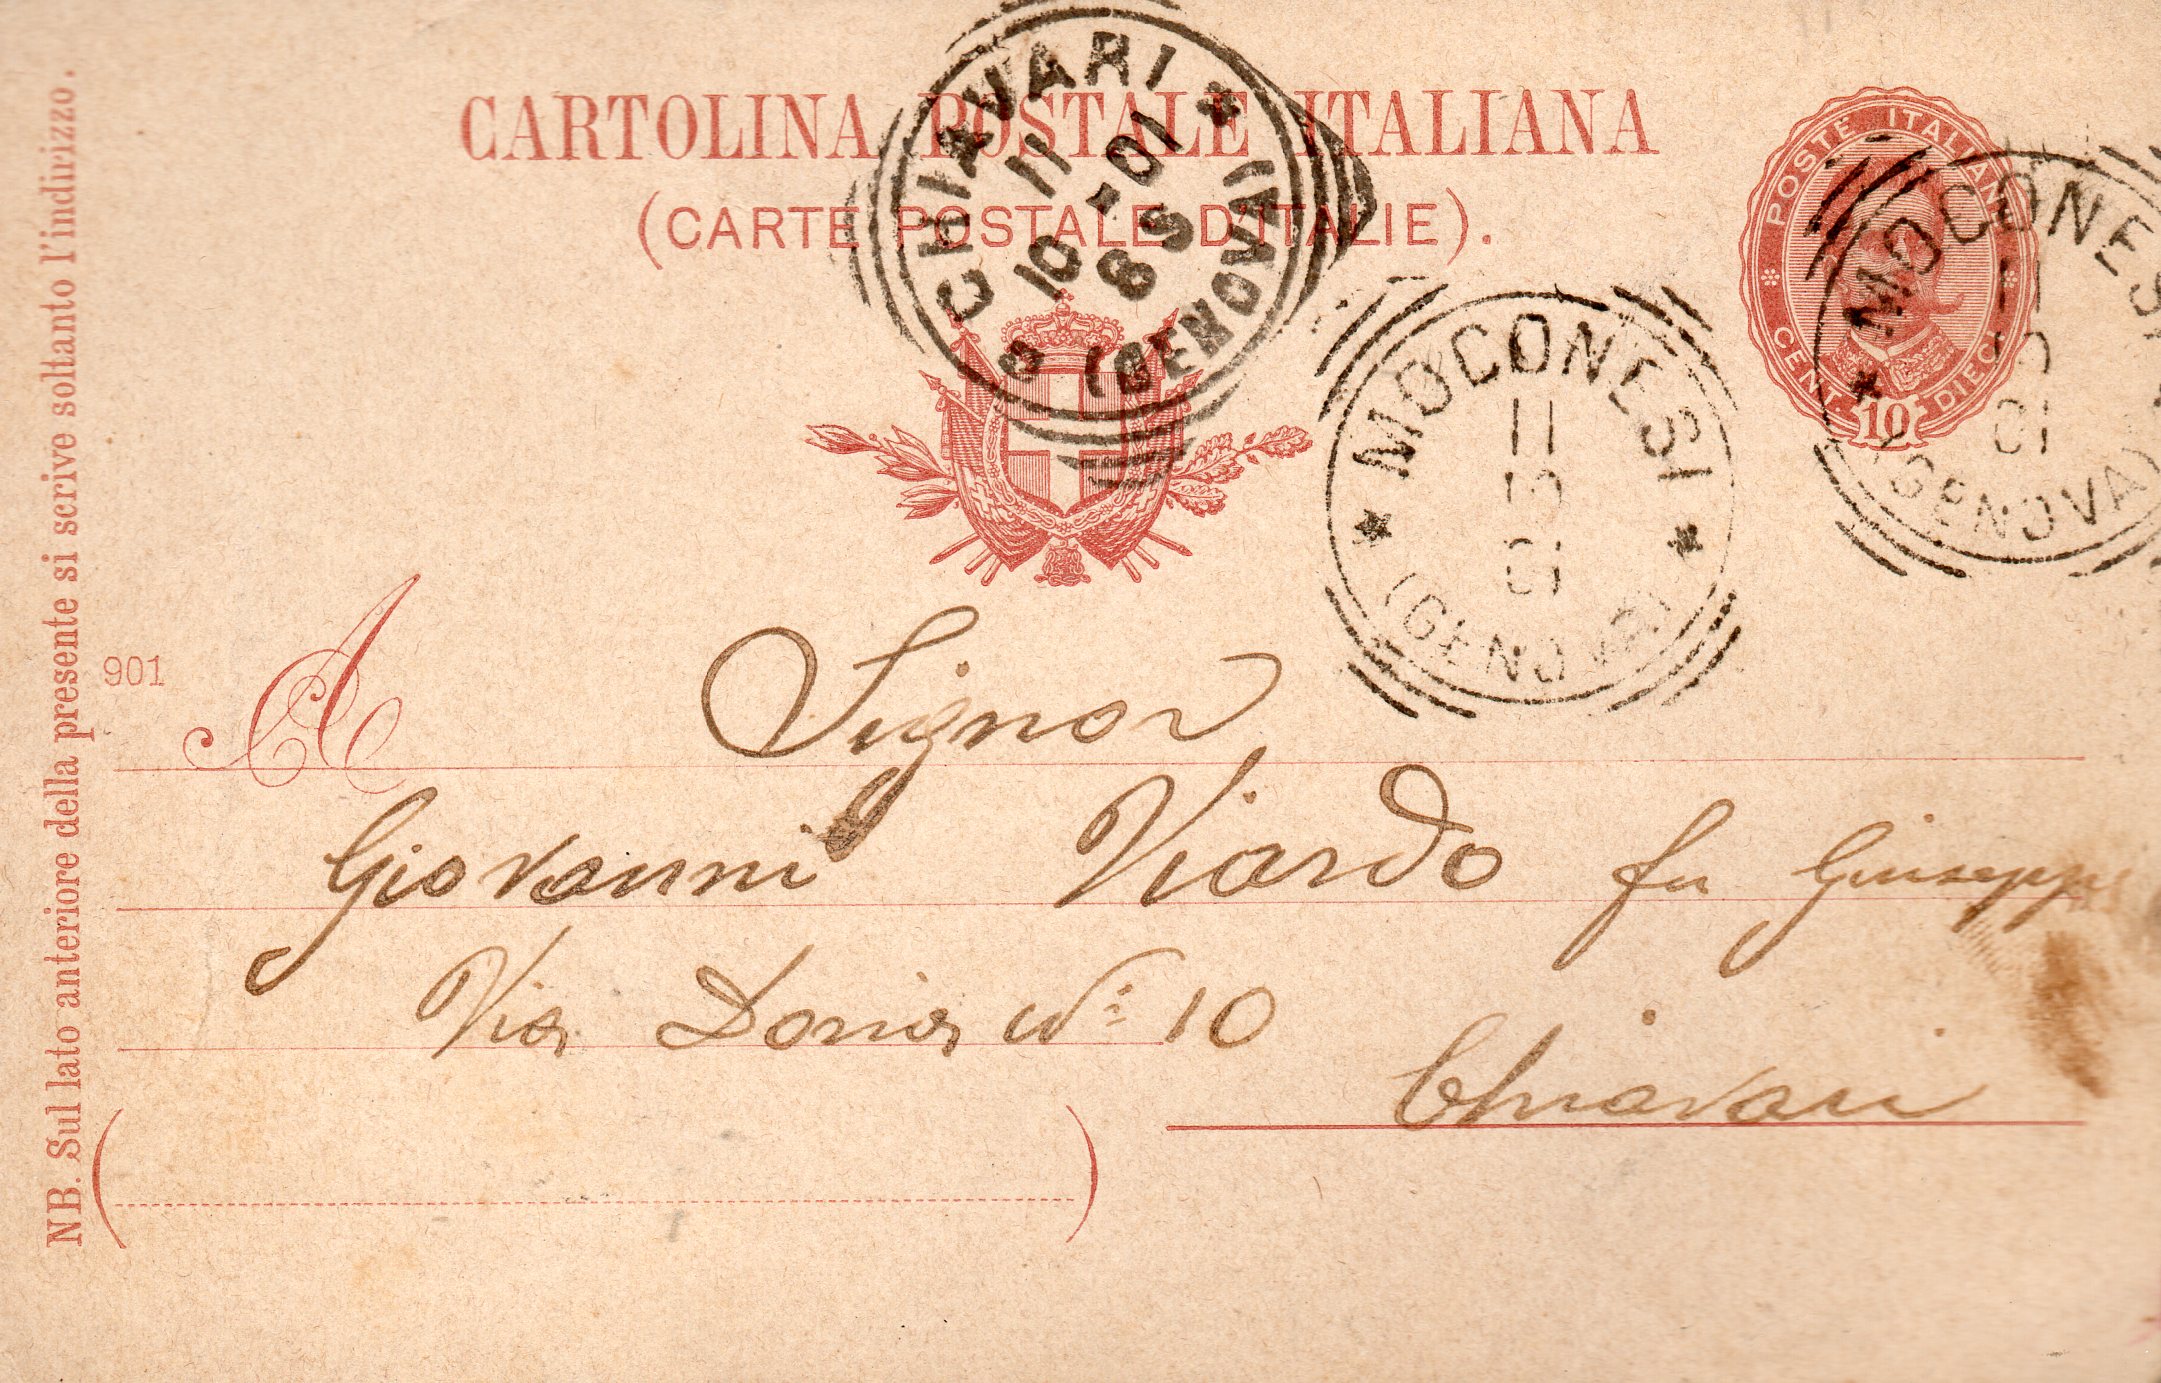 CARTOLINA POSTALE ITALIANA
(CARTE POSTALE D'ITALIE).
CHIAVARI
(GENOVA)
11
10 - 01
8 S
POSTE ITALIANE
CENT. 10 DIECI
MOCONESI
11
(GENOVA)
MOCONESI
11
01
(GENOVA)
NB. Sul lato anteriore della presente si scrive soltanto l'indirizzo.
901
A Signor
Giovanni Viardo fu Giuseppe
Via Doria N: 10
Chiavari